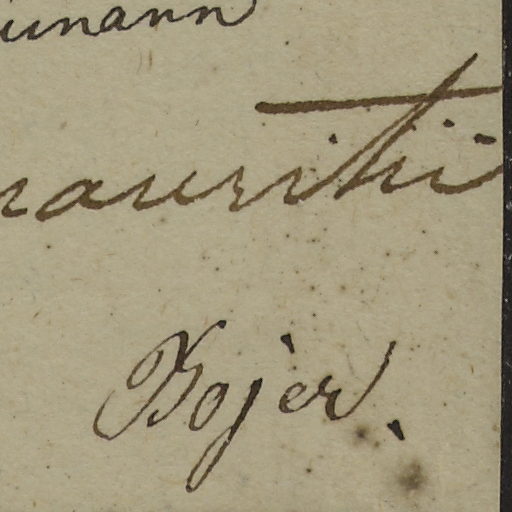 umann
mauritii
Bojer.